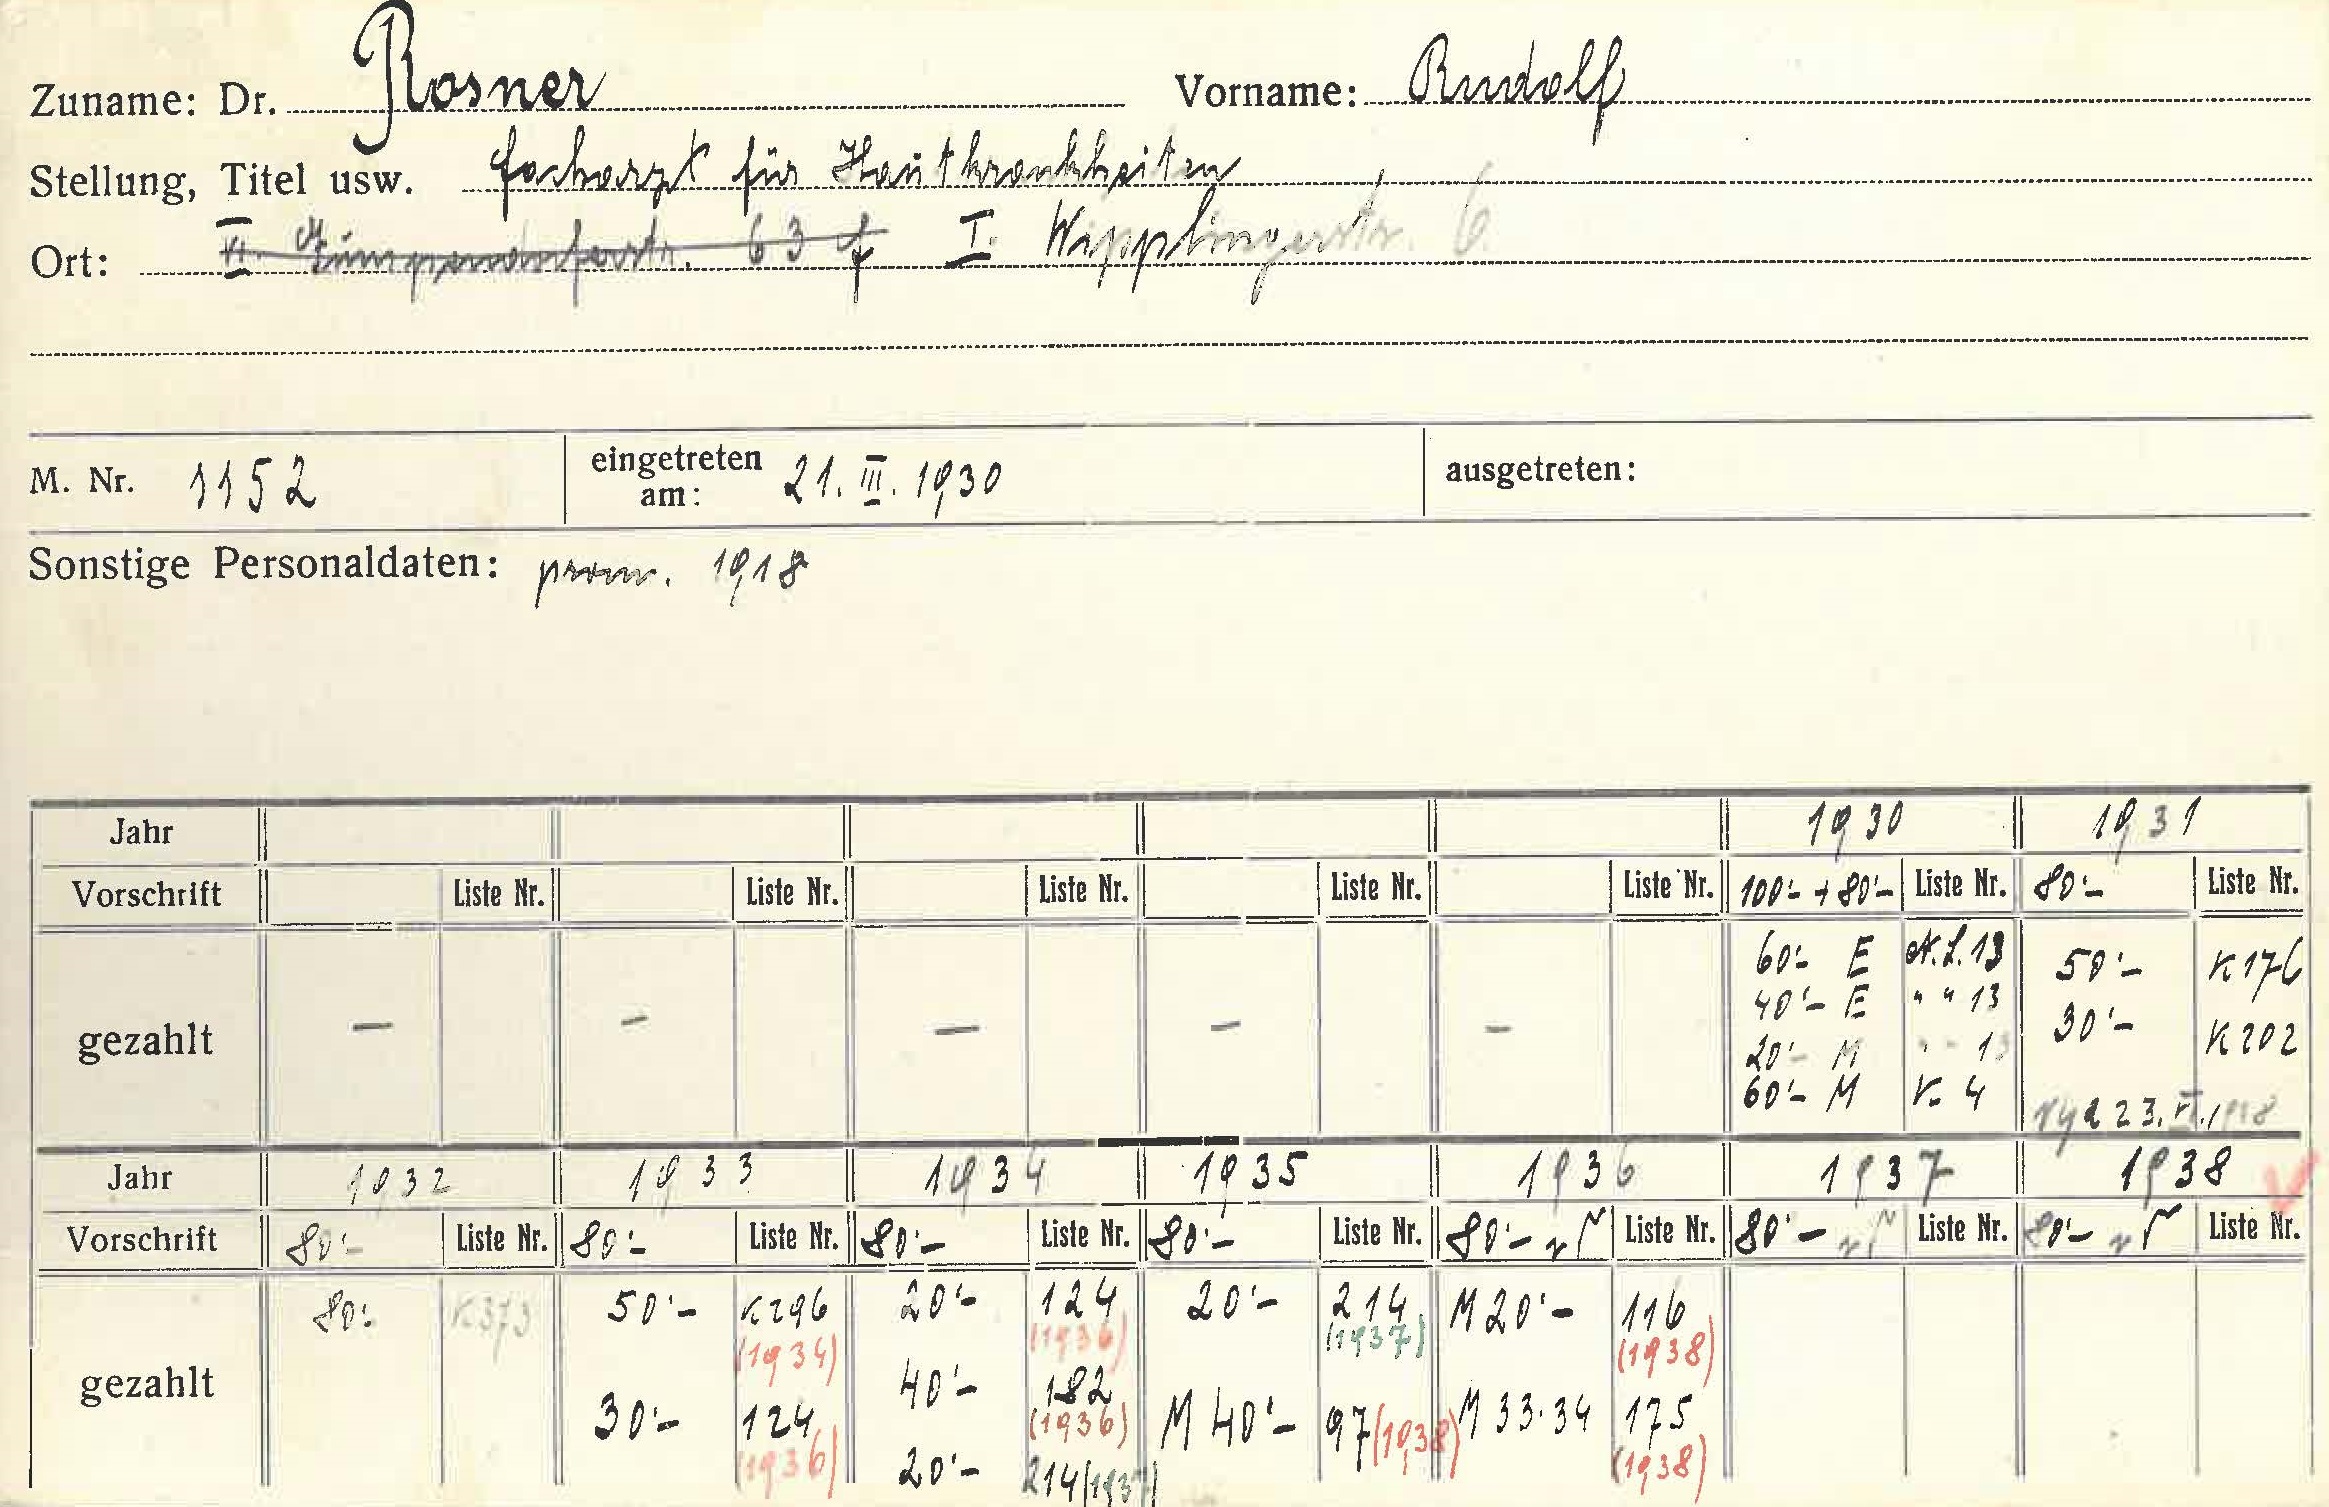 Zuname: Dr. Rosner Vorname: Rudolf
Stellung, Titel usw. Facharzt für Hautkrankheiten
Ort: VI. Gumpendorferstr. 63 f I. Wipplingerstr. 6
M. Nr. 1152 eingetreten am: 21. III. 1930 ausgetreten:
Sonstige Personaldaten: prom. 1918
Jahr 1930 1931
Vorschrift Liste Nr. Liste Nr. Liste Nr. Liste Nr. Liste Nr. 100'- + 80'- Liste Nr. 80'- Liste Nr.
gezahlt - - - - -
60'- E A.L. 13 50'- K 176
40'- E " " 13 30'- K 202
20'- M " " 13
60'- M K. 4
23. VI. 1938
Jahr 1932 1933 1934 1935 1936 1937 1938
Vorschrift 80'- Liste Nr. 80'- Liste Nr. 80'- Liste Nr. 80'- Liste Nr. 80'- Liste Nr. 80'- Liste Nr. 80'- Liste Nr.
gezahlt
80'- K373 50'- K296 20'- 124 20'- 214 M 20'- 116
(1934) (1936) (1937) (1938)
30'- 124 40'- 182 M 40'- 97 (1938) M 33·34 175
(1936) (1936) (1938)
20'- 214 (1937)